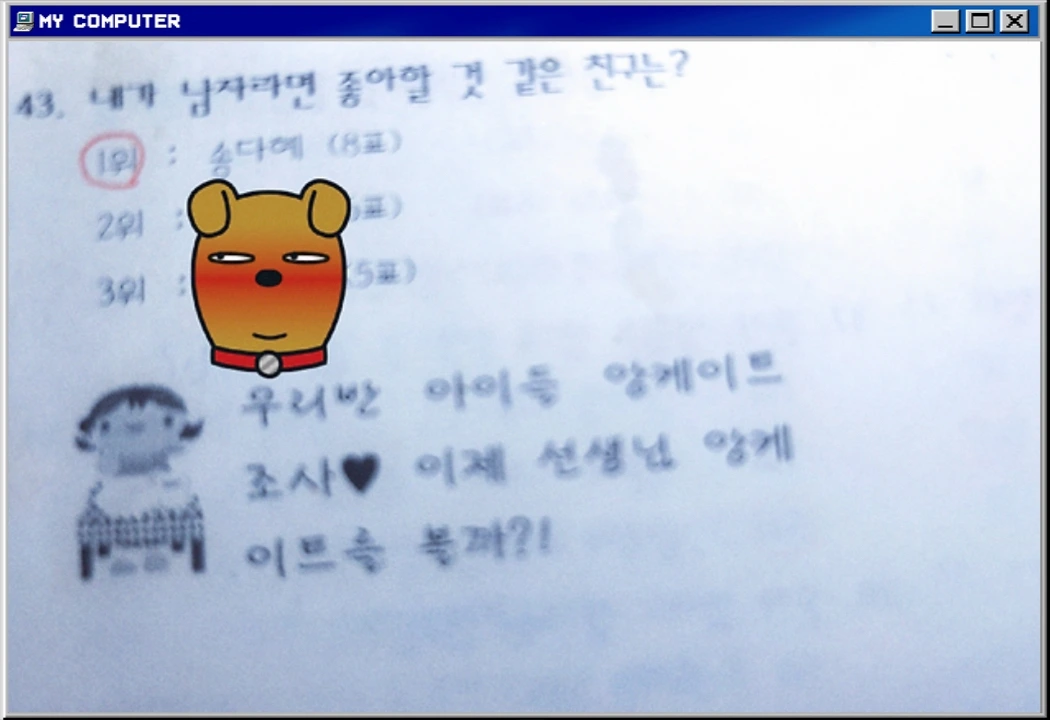 MY COMPUTER
43. 내가 남자라면 좋아할 것 같은 친구는?
1위 : 송다혜 (8표)
2위 : 표)
3위 : (5표)
우리반 아이들 앙케이트
조사♥ 이제 선생님 앙케
이트를 볼까?!